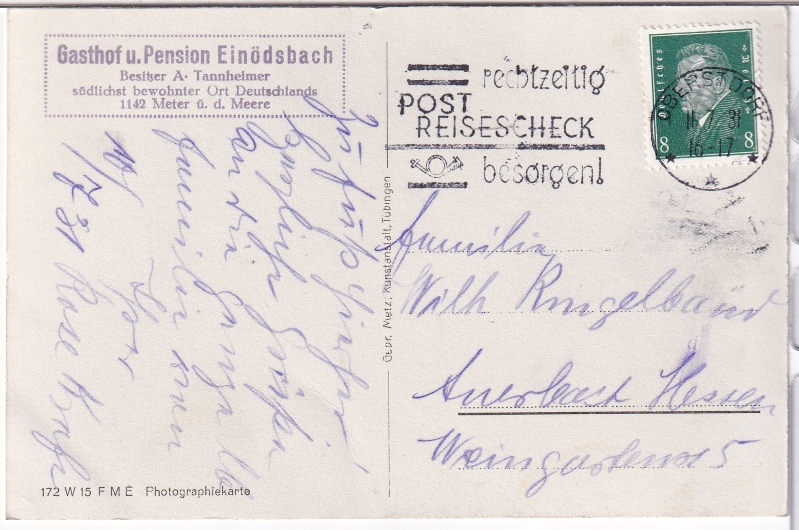 Gasthof u. Pension Einödsbach
Besitzer A. Tannheimer
südlichst bewohnter Ort Deutschlands
1142 Meter ü. d. Meere
rechtzeitig
POST
REISESCHECK
besorgen!
Deutsches Reich
8 8
OBERSTDORF
16-17
Herzliche Grüßen
an die ganze
Familie
Rosa
Familie
Wilh Ringelband
Auerbach Hessen
Weingartenstr 5
GEBR. Metz, Kunstanstalt, Tübingen
172 W 15 F M E Photographiekarte